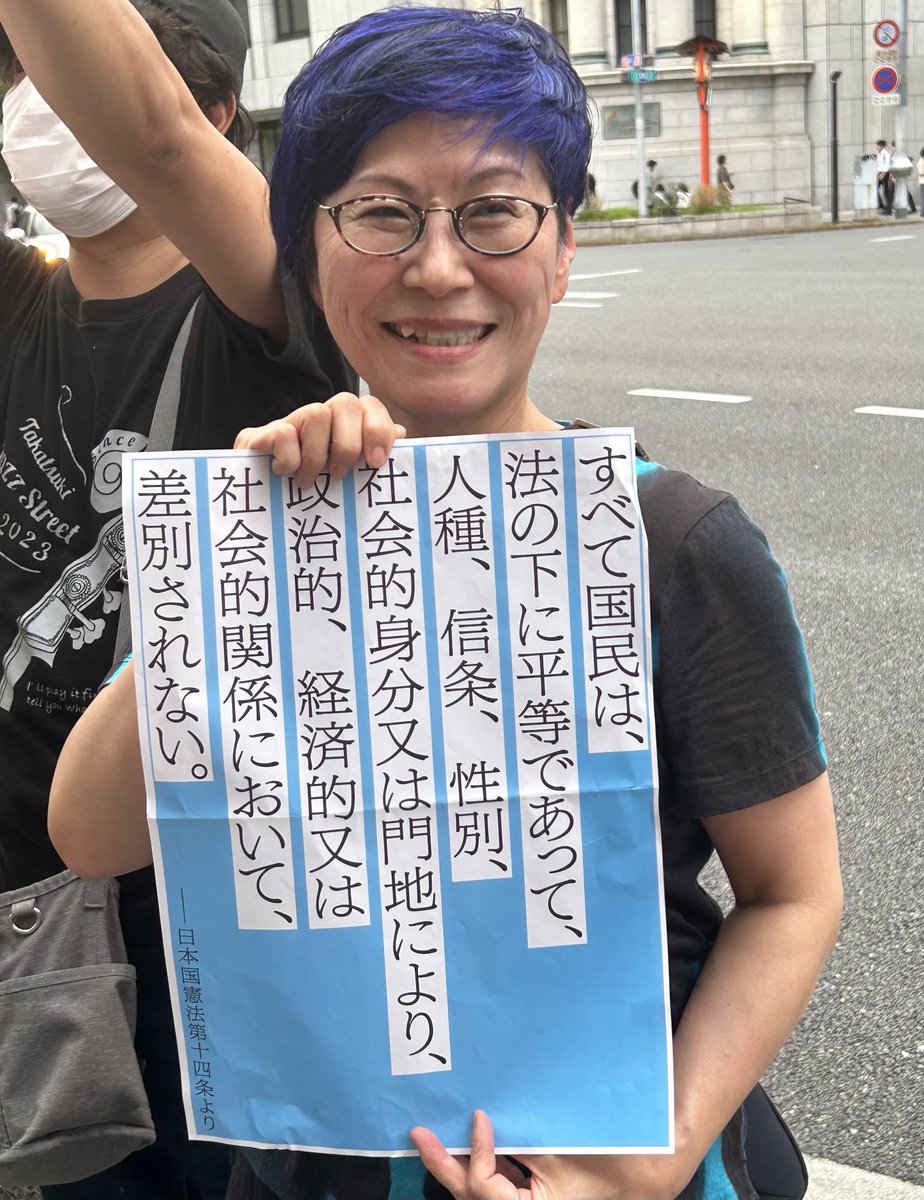 すべて国民は、
法の下に平等であって、
人種、信条、性別、
社会的身分又は門地により、
政治的、経済的又は
社会的関係において、
差別されない。
——日本国憲法第十四条より
Takatsuki
Jazz Street
2023
since
I'll play it
tell you